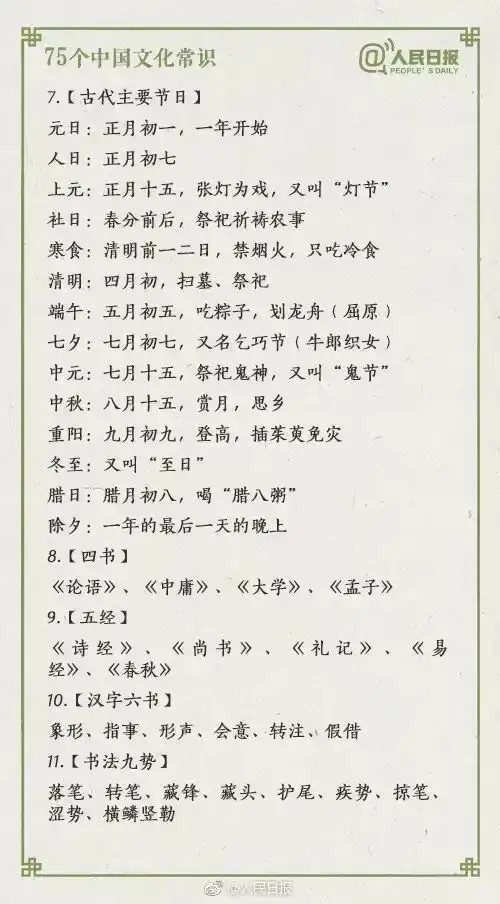 75个中国文化常识
@人民日报
PEOPLE'S DAILY
7.【古代主要节日】
元日：正月初一，一年开始
人日：正月初七
上元：正月十五，张灯为戏，又叫“灯节”
社日：春分前后，祭祀祈祷农事
寒食：清明前一二日，禁烟火，只吃冷食
清明：四月初，扫墓、祭祀
端午：五月初五，吃粽子，划龙舟（屈原）
七夕：七月初七，又名乞巧节（牛郎织女）
中元：七月十五，祭祀鬼神，又叫“鬼节”
中秋：八月十五，赏月，思乡
重阳：九月初九，登高，插茱萸免灾
冬至：又叫“至日”
腊日：腊月初八，喝“腊八粥”
除夕：一年的最后一天的晚上
8.【四书】
《论语》、《中庸》、《大学》、《孟子》
9.【五经】
《诗经》、《尚书》、《礼记》、《易
经》、《春秋》
10.【汉字六书】
象形、指事、形声、会意、转注、假借
11.【书法九势】
落笔、转笔、藏锋、藏头、护尾、疾势、掠笔、
涩势、横鳞竖勒
@人民日报